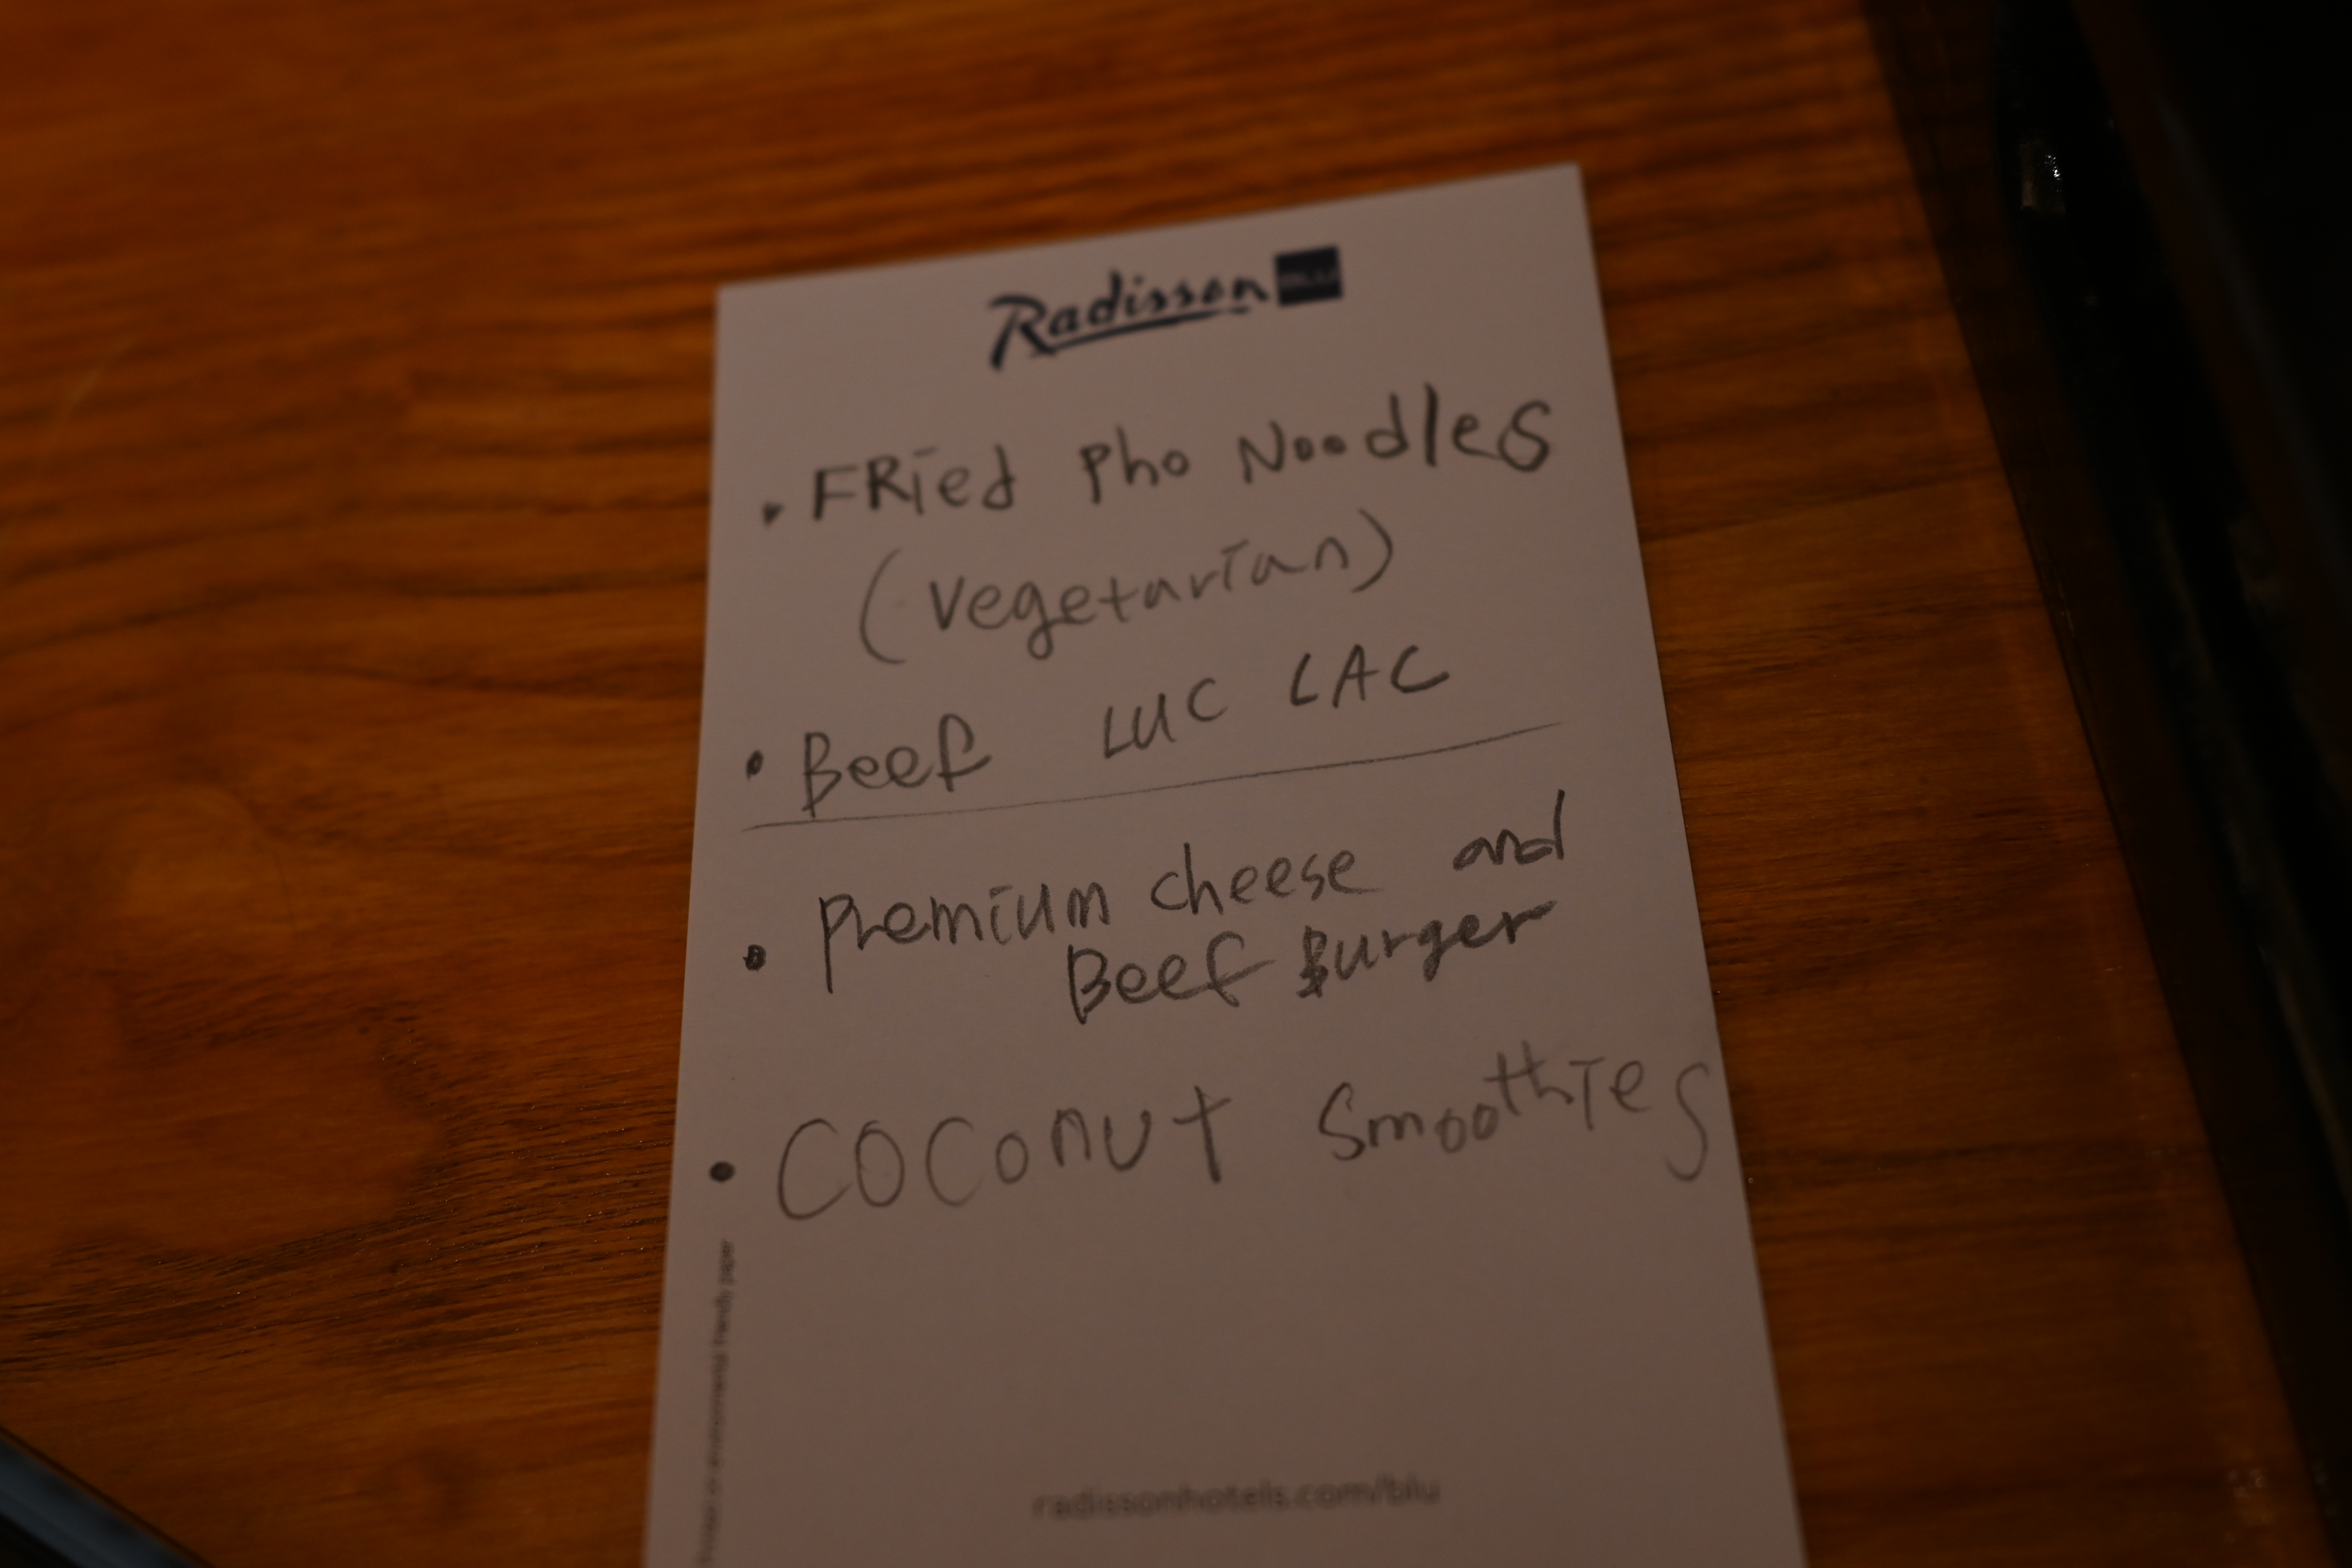 Radisson BLU
• FRied Pho Noodles
(Vegetarian)
• Beef LUC LAC
• Premium cheese and
Beef Burger
• COCONUT Smoothies
Printed on environmental friendly paper
radissonhotels.com/blu